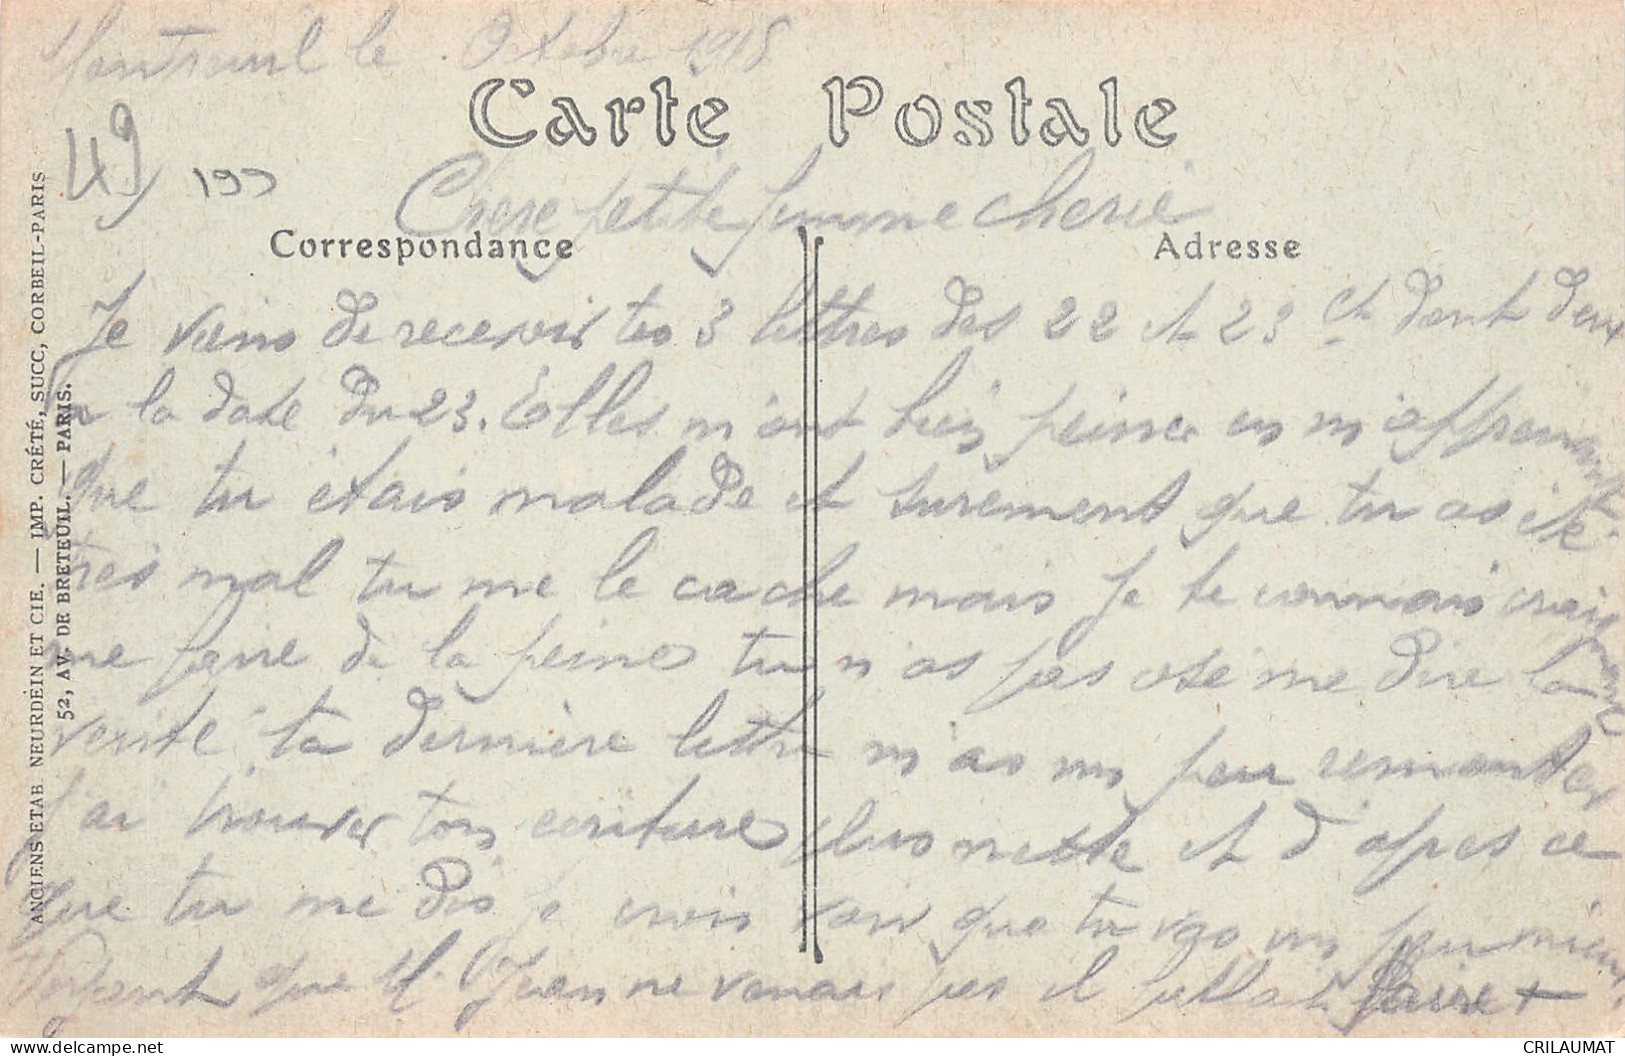 Montreuil le Octobre 1918
Carte Postale
49
199
Chere petite femme cherie
Correspondance
Adresse
Je viens de recevoir tes 3 lettres des 22 et 23 ct dont deux
a la date du 23. Elles m'ont bien peiner en m'apprenant
que tu étais malade et surement que tu as été
tres mal tu me le cache mais je te connais craignant
me faire de la peine tu n'as pas osé me dire la
verité ta dernière lettre m'as un peu remonter
j'ai trouver ton ecriture plus nette et d'apres ce
que tu me dis je crois voir que tu vas un peu mieux
Voyant que M. Jean ne venais pas il fallait faire +
ANCIENS ETAB. NEURDEIN ET CIE. — IMP. CRÉTÉ, SUCC, CORBEIL-PARIS
52, AV. DE BRETEUIL. — PARIS.
www.delcampe.net
CRILAUMAT